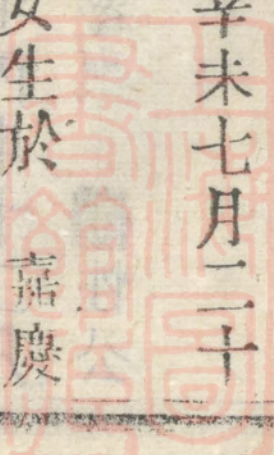 辛未七月二十
女生於　嘉慶